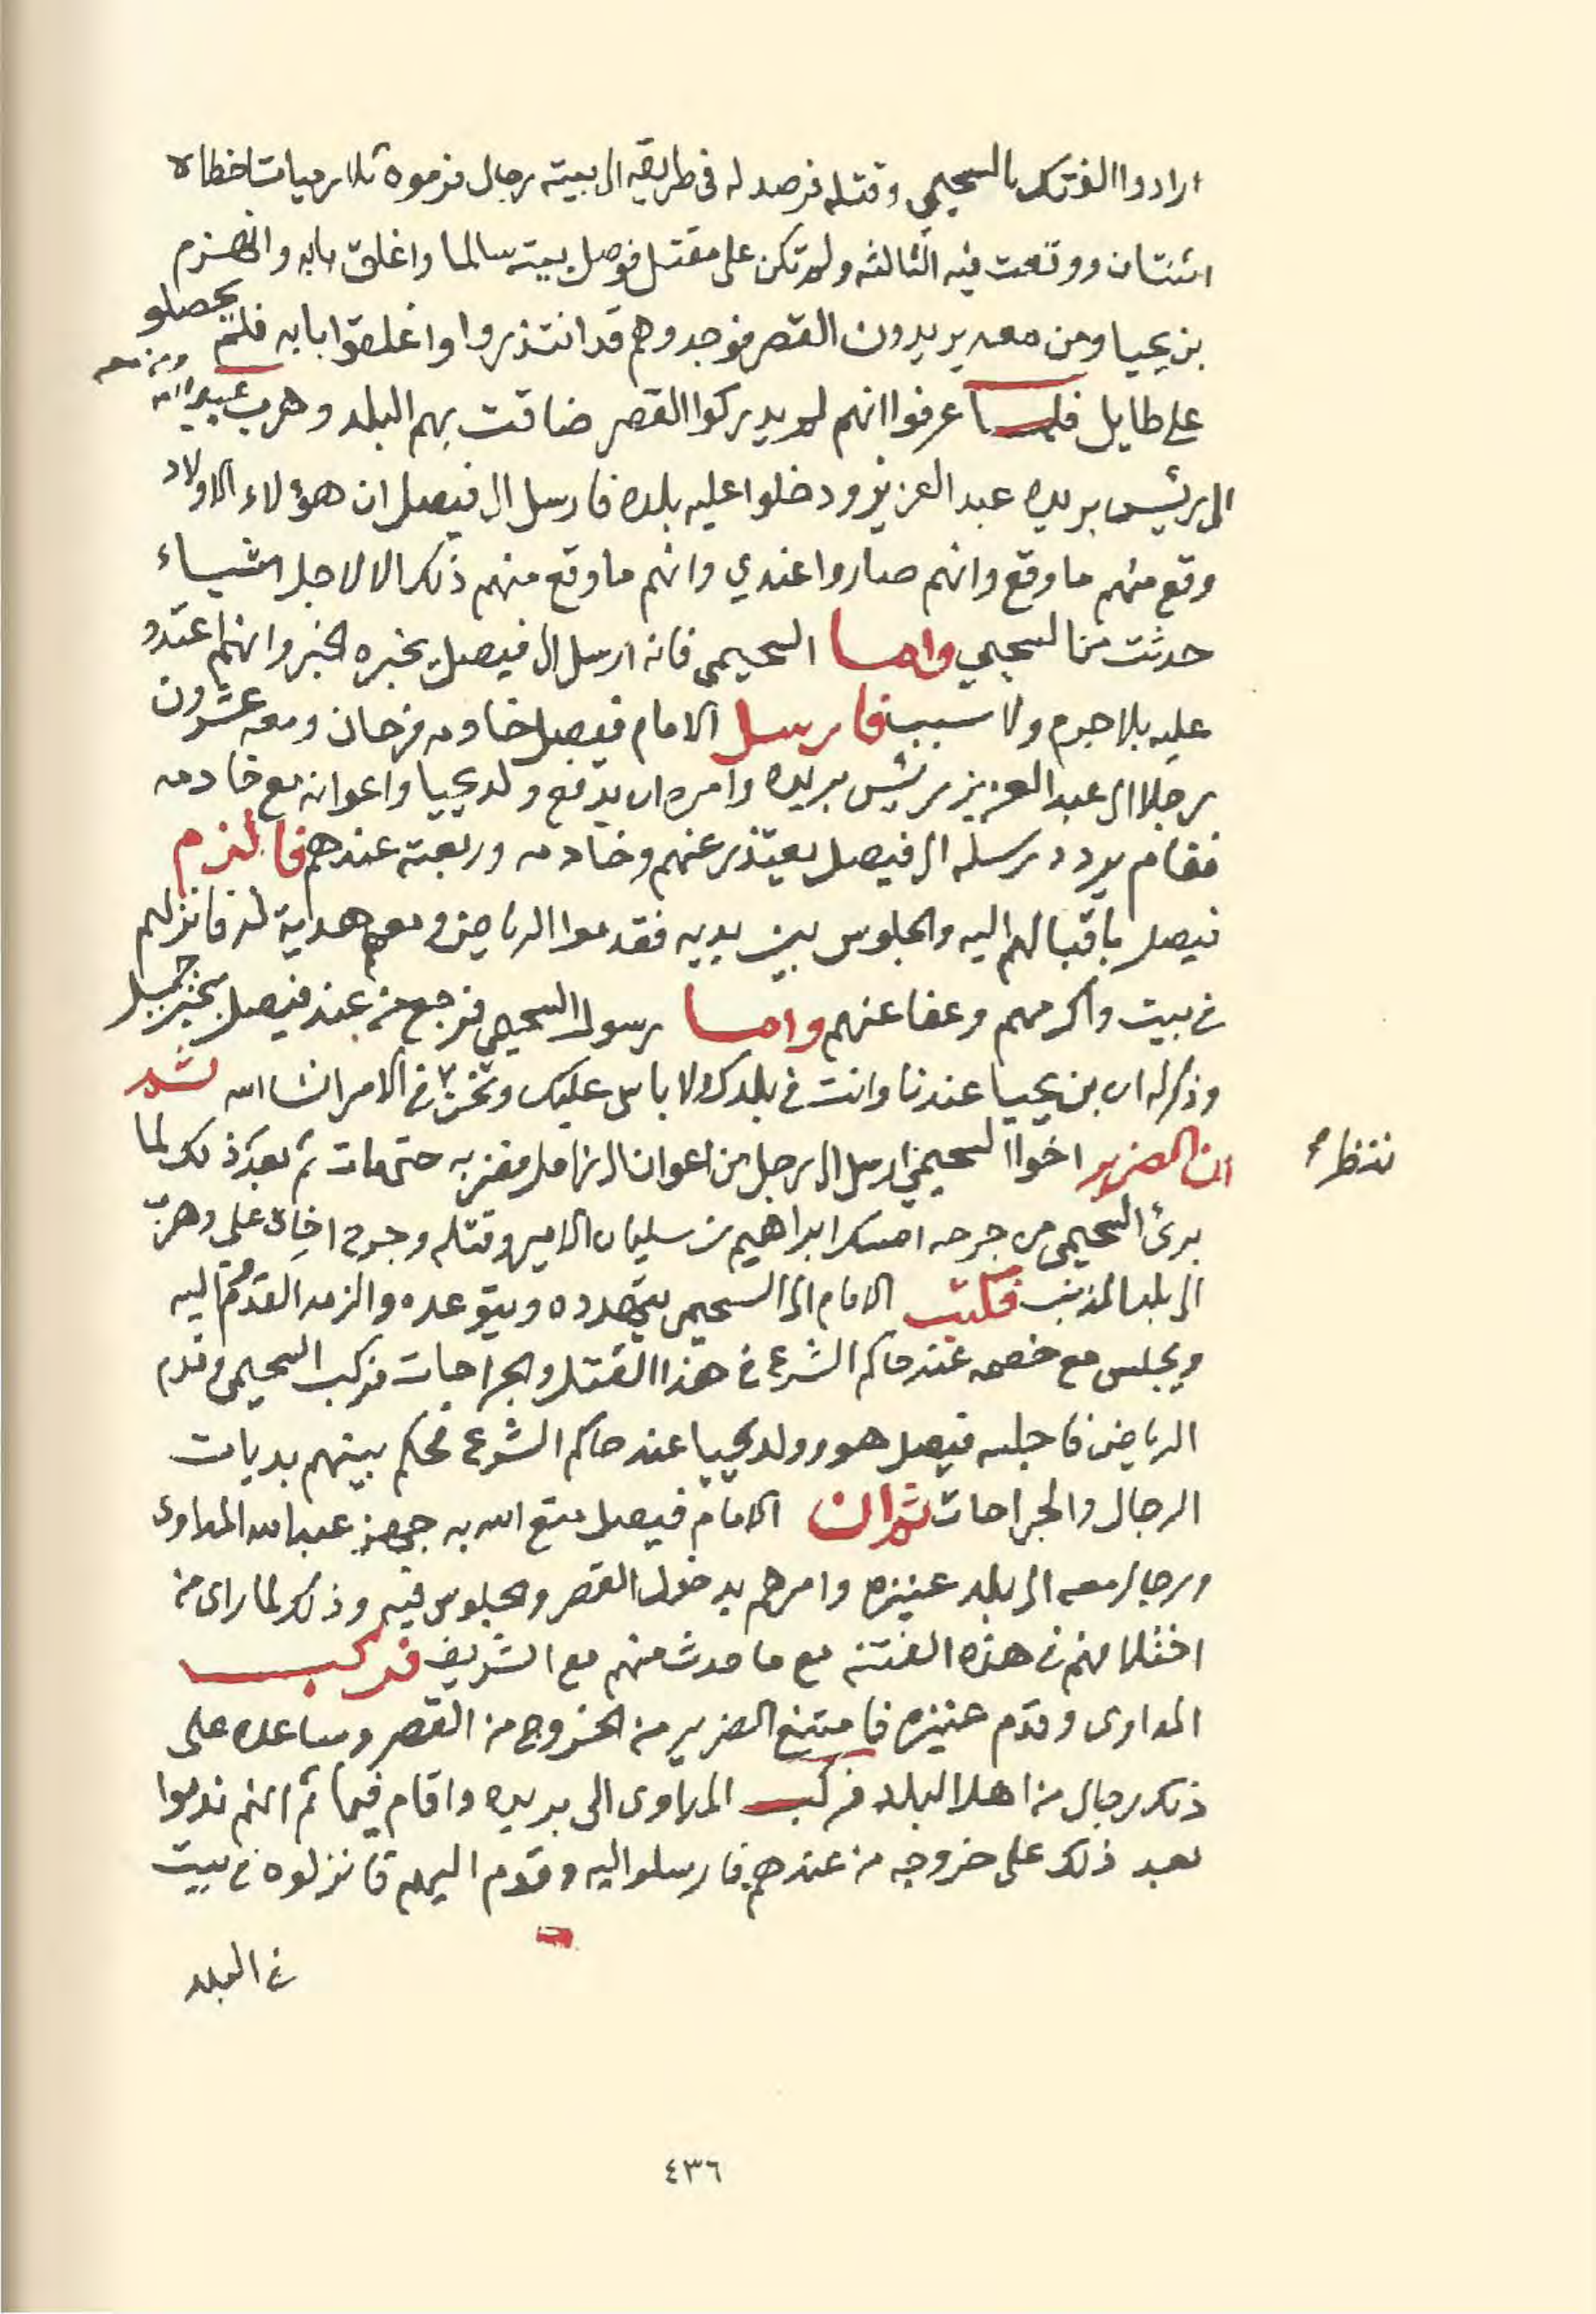 ارادوا الفتك بالسحيمي وقتله فرصد له في طريقه الى بيته رجال فرموه ثلاث رميات اخطاه
اثنتان ووقعت فيه الثالثه ولم تكن على مقتل فوصل بيته سالما واغلق بابه وانهزم
بن يحيا ومن معه يريدون القصر فوجدوهم قد انتذروا واغلقوا بابه فلم يحصلو
على طايل فلما عرفوا انهم لم يدركوا القصر ضاقت بهم البلد وهرب عبدالله ومن معه
الى رئيس بريده عبد العزيز ودخلوا عليه بلده فارسل الى فيصل ان هؤلاء الاولاد
وقع منهم ما وقع وانهم صاروا عندي وانهم ما وقع منهم ذلك الا لاجل اشياء
حدثت من السحيمي واما السحيمي فانه ارسل الى فيصل يخبره الخبر وانهم اعتدو
عليه بلا جرم ولا سبب فارسل الامام فيصل خادمه فرحان ومعه عشرون
رجلا الى عبد العزيز رئيس بريده وامره ان يدفع ولد يحيا واعوانه مع خادمه
فقام يردد رسله الى فيصل يعتذر عنهم وخادمه وربعته عندهم فالزم
فيصل باقبالهم اليه والجلوس بين يديه فقدموا الرياض ومعهم هدية له فانزلهم
في بيت واكرمهم وعفا عنهم واما رسول السحيمي فرجع من عند فيصل بخبر جميل
وذكر له ان بن يحيا عندنا وانت في بلدك ولا باس عليك ونحن في الامر انشاالله ثم
ننظر
ان الضرير اخوا السحيمي ارسل الى رجل من اعوان الزامل فضربه حتى مات ثم بعد ذلك لما
برئ السحيمي من جرحه امسك ابراهيم بن سليمان الامير وقتله وجرح اخاه علي وهرب
الى بلد المذنب فكتب الامام الى السحيمي يتهدده ويتوعده والزمه القدوم اليه
ويجلس مع خصمه عند حاكم الشرع في هذا القتل والجراحات فركب السحيمي وقدم
الرياض فاجلسه فيصل هو وولد يحيا عند حاكم الشرع فحكم بينهم بديات
الرجال والجراحات ثم ان الامام فيصل متع الله به جهز عبدالله المداوى
ورجال معه الى بلد عنيزه وامرهم بدخول القصر والجلوس فيه وذلك لما راى من
اختلافهم في هذه الفتنه مع ما حدث منهم مع الشريف فركب
المداوى وقدم عنيزه فامتنع الضرير من الخروج من القصر وساعده على
ذلك رجال من اهل البلد فركب المداوى الى بريده واقام فيها ثم انهم ندموا
بعد ذلك على خروجه من عندهم فارسلوا اليه وقدم اليهم فانزلوه في بيت
في البلد
٤٣٦